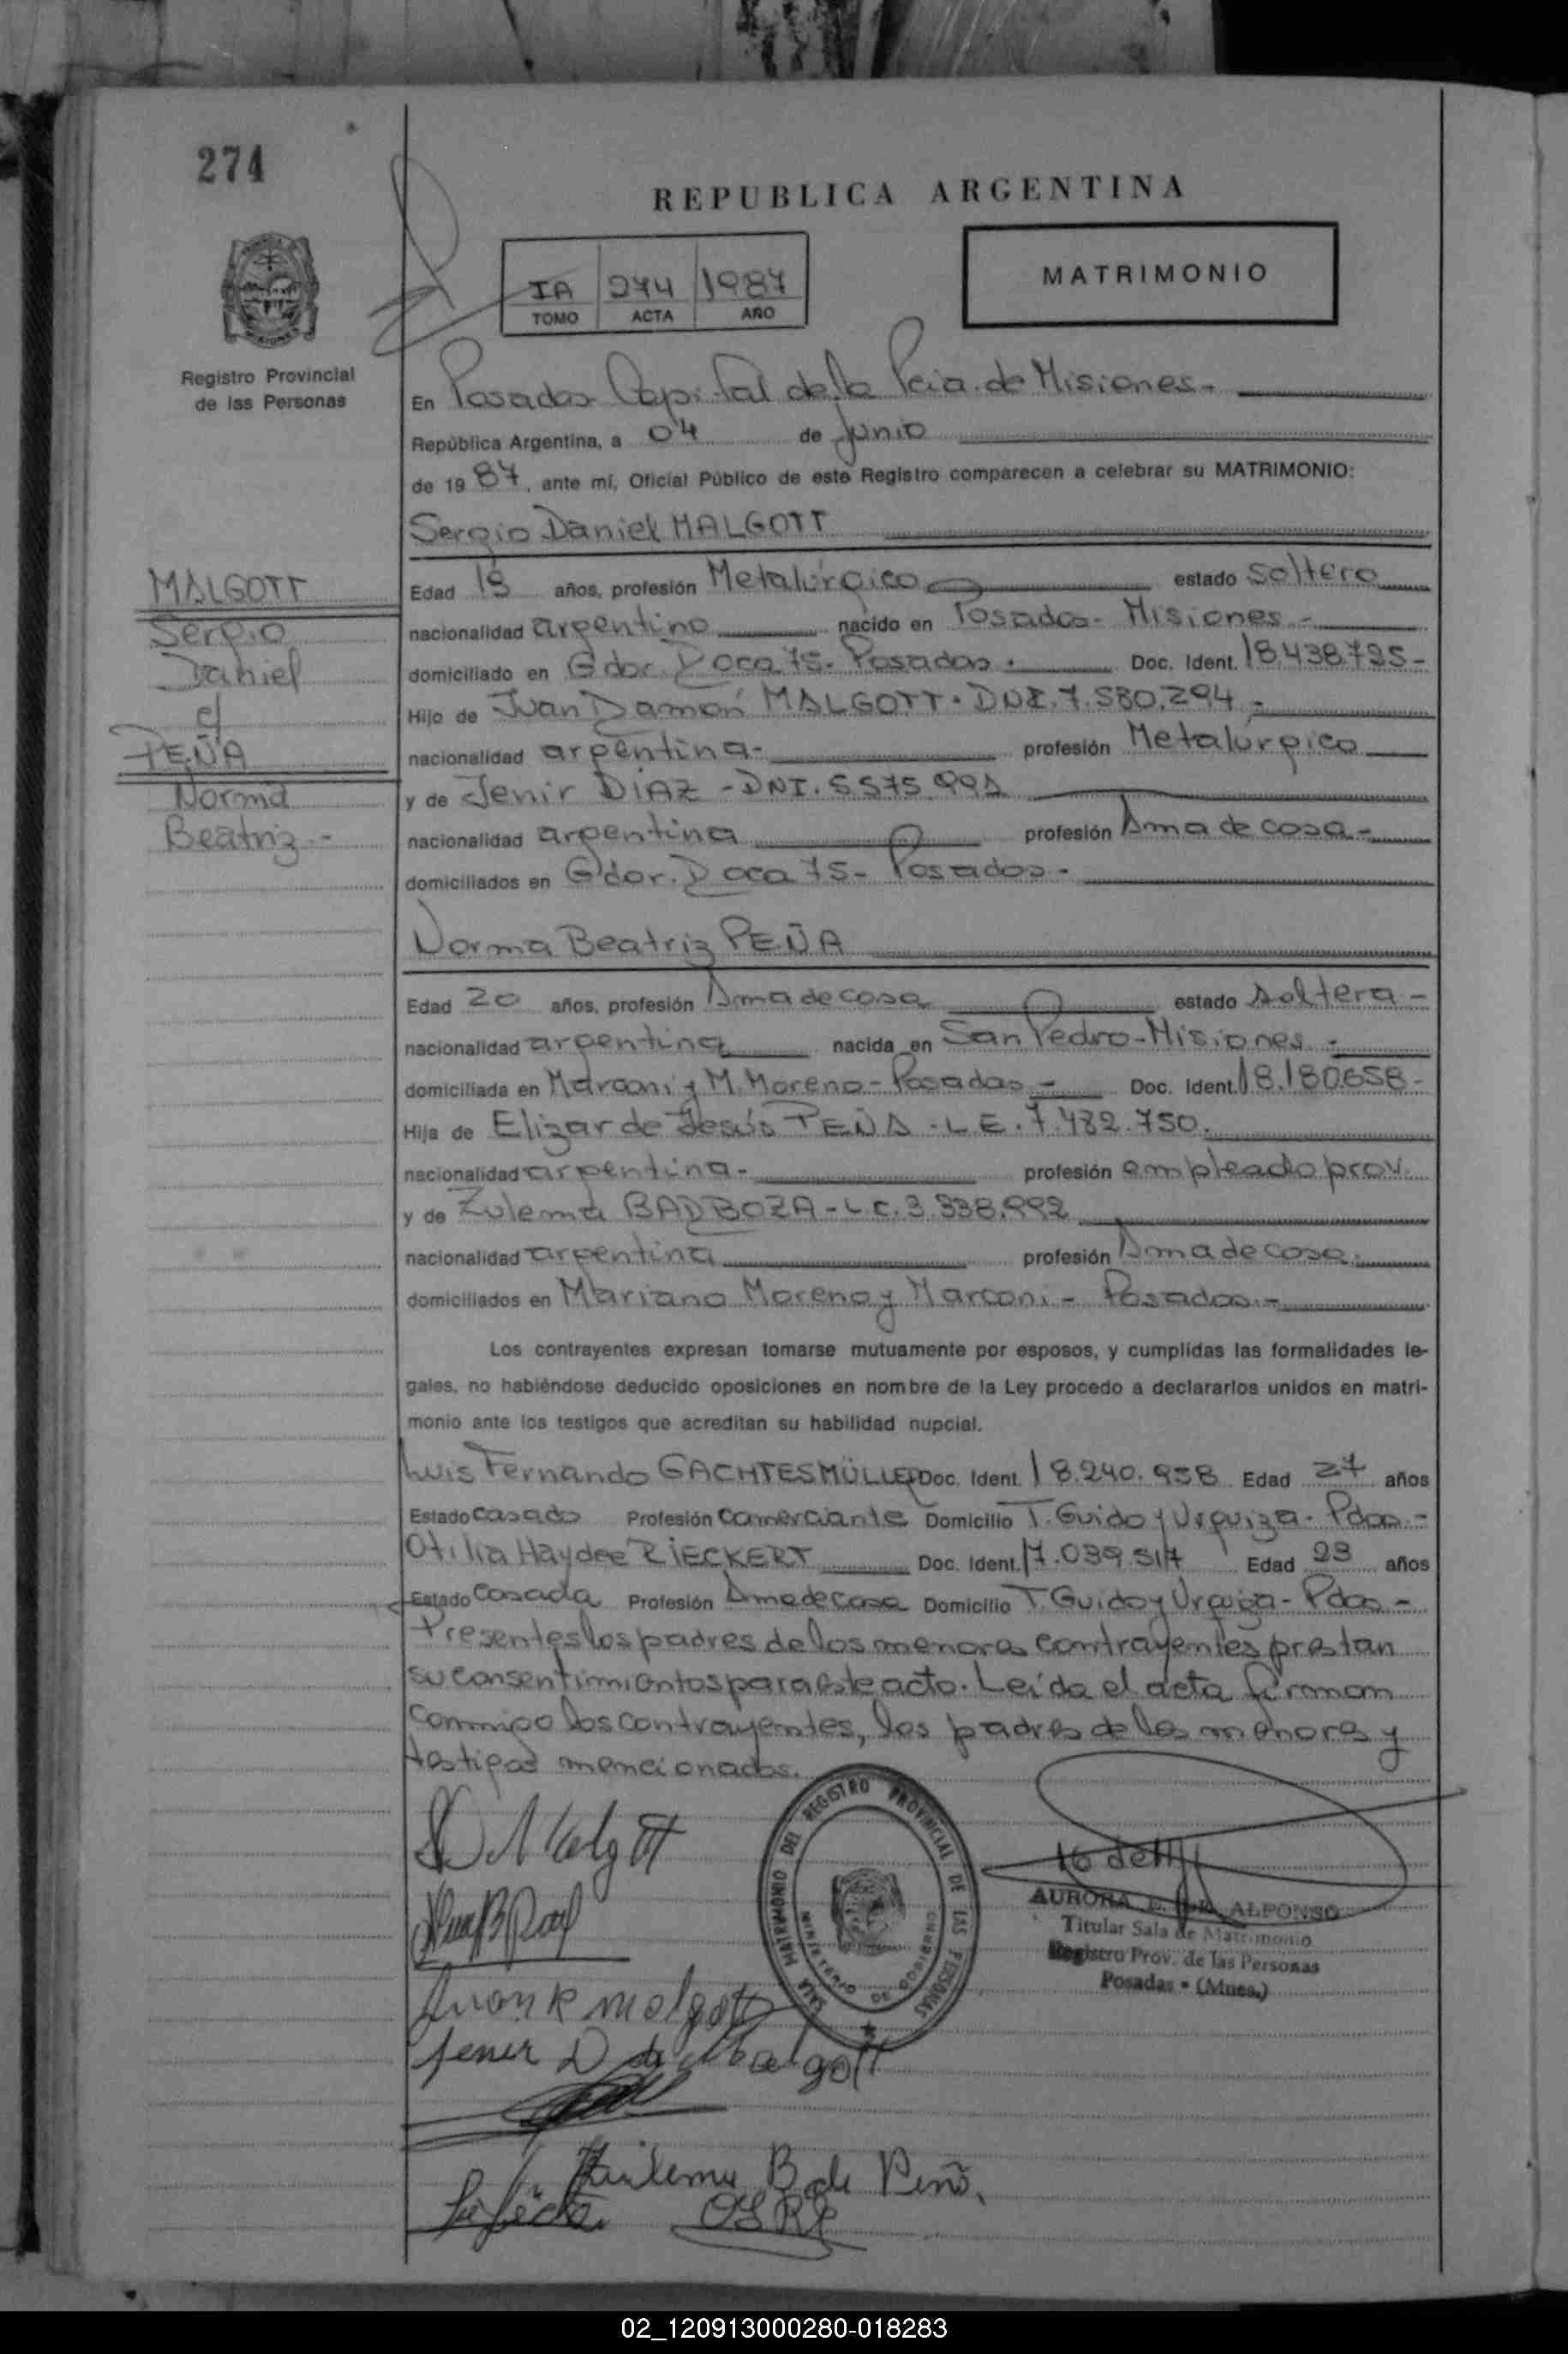 274
REPUBLICA ARGENTINA
IA 274 1987
TOMO ACTA AÑO
MATRIMONIO
Registro Provincial
de las Personas
En Posadas Capital de la Pcia. de Misiones.-
República Argentina, a 04 de junio
de 1987, ante mí, Oficial Público de este Registro comparecen a celebrar su MATRIMONIO:
Sergio Daniel MALGOTT
MALGOTT
Sergio
Daniel
c/
PEÑA
Norma
Beatriz.-
Edad años, profesión Metalúrgico estado soltero
nacionalidad argentino nacido en Posadas- Misiones.-
domiciliado en Gdor. Roca 75- Posadas. Doc. Ident. 18.438.795-
Hijo de Juan Ramón MALGOTT. DNI. 7.580.294.-
nacionalidad argentina- profesión Metalúrgico
y de Jenir DIAZ - DNI. 5.575.991
nacionalidad argentina profesión Ama de casa-
domiciliados en Gdor. Roca 75- Posadas-
Norma Beatriz PEÑA
Edad 20 años, profesión Ama de casa estado soltera-
nacionalidad argentina nacida en San Pedro-Misiones.-
domiciliada en Marconi y M. Moreno- Posadas- Doc. Ident. 18.180.658-
Hija de Elizar de Jesús PEÑA - L.E. 7.482.750.
nacionalidad argentina- profesión empleado prov.
y de Zulema BARBOZA - L.C. 3.338.992
nacionalidad argentina profesión Ama de casa.
domiciliados en Mariano Moreno y Marconi- Posadas.-
Los contrayentes expresan tomarse mutuamente por esposos, y cumplidas las formalidades le-
gales, no habiéndose deducido oposiciones en nombre de la Ley procedo a declararlos unidos en matri-
monio ante los testigos que acreditan su habilidad nupcial.
Luis Fernando GACHTESMÜLLER Doc. Ident. 18.240.958 Edad 27 años
Estado casado Profesión comerciante Domicilio T. Guido y Urquiza- Pdas.-
Otilia Haydee RIECKERT Doc. Ident. 17.039.517 Edad 23 años
Estado casada Profesión Ama de casa Domicilio T. Guido y Urquiza- Pdas-
Presentes los padres de los menores contrayentes prestan
su consentimientos para este acto. Leída el acta firman
conmigo los contrayentes, los padres de los menores y
testigos mencionados.
SALA MATRIMONIO DEL REGISTRO PROVINCIAL DE LAS PERSONAS
MINISTERIO DE GOBIERNO
AURORA E. ALFONSO
Titular Sala de Matrimonio
Registro Prov. de las Personas
Posadas - (Mnes.)
Juan R Malgott
Jenir D de Malgott
Zulema B de Peña
02_120913000280-018283